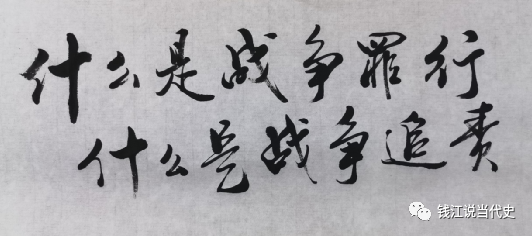 什么是战争罪行
什么是战争追责
钱江说当代史